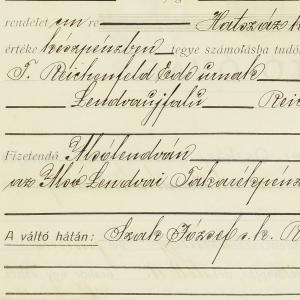 rendelet em re Hatszáz k
értéke készpénzben tegye számolásba tudó
T. Reichenfeld Ede urnak
Lendvaujfalu Rei
Fizetendő Alsólendván
az Alsó Lendvai Takarékpénz
A váltó hátán: Szak József s.k. R